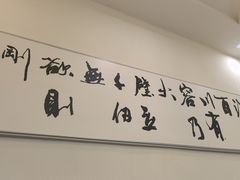 百川有容乃大壁立千仞無欲則剛